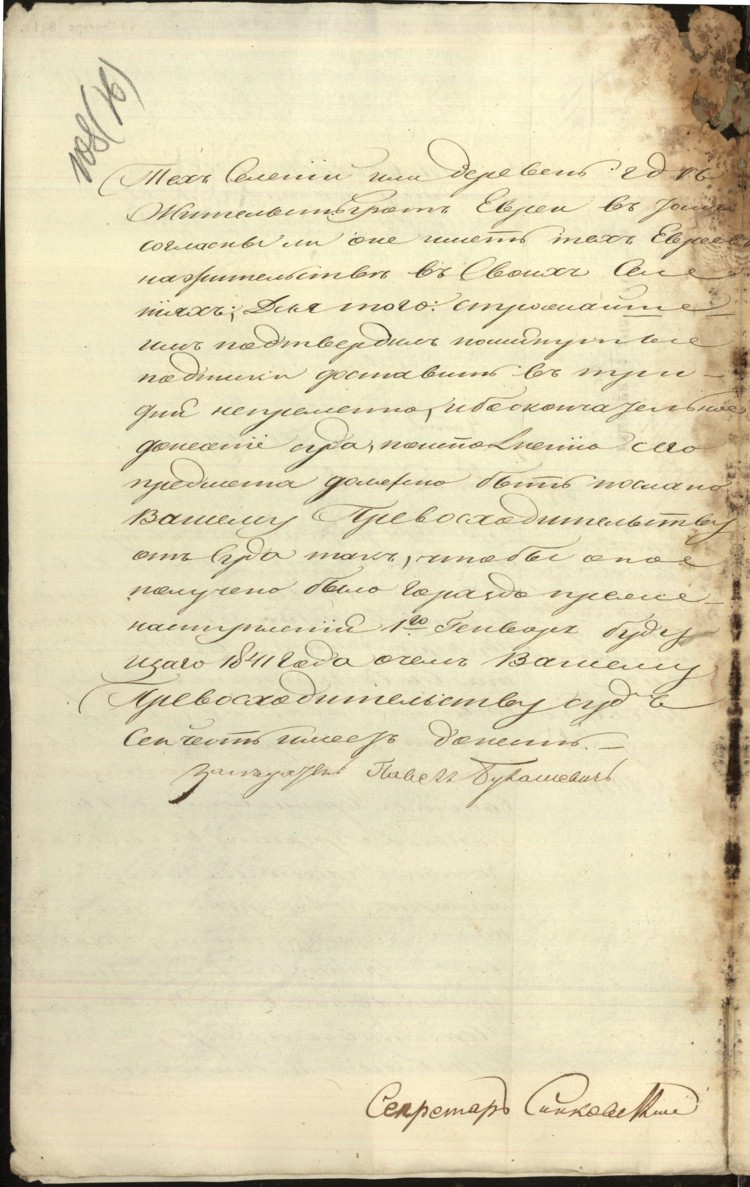 108(76)
Техъ Селеній или деревень где
Жительствуютъ Евреи въ томъ
согласны ли оне иметь техъ Евреевъ
на жительстве въ Своихъ Селе
ніяхъ; Для того: строжайше
имъ подтвердилъ помянутые
подписки доставить въ три
дни непременно, ибо окончательное
донесеніе суда, по исполненію сего
предмета должно быть послано
Вашему Превосходительству
отъ Суда такъ, чтобы оное
получено было гораздо преже
наступленій 1го Генваръ буду
щаго 1841 года очемъ Вашему
Превосходительству судъ
Сей честь имеетъ донесть.
Павелъ
Секретаръ